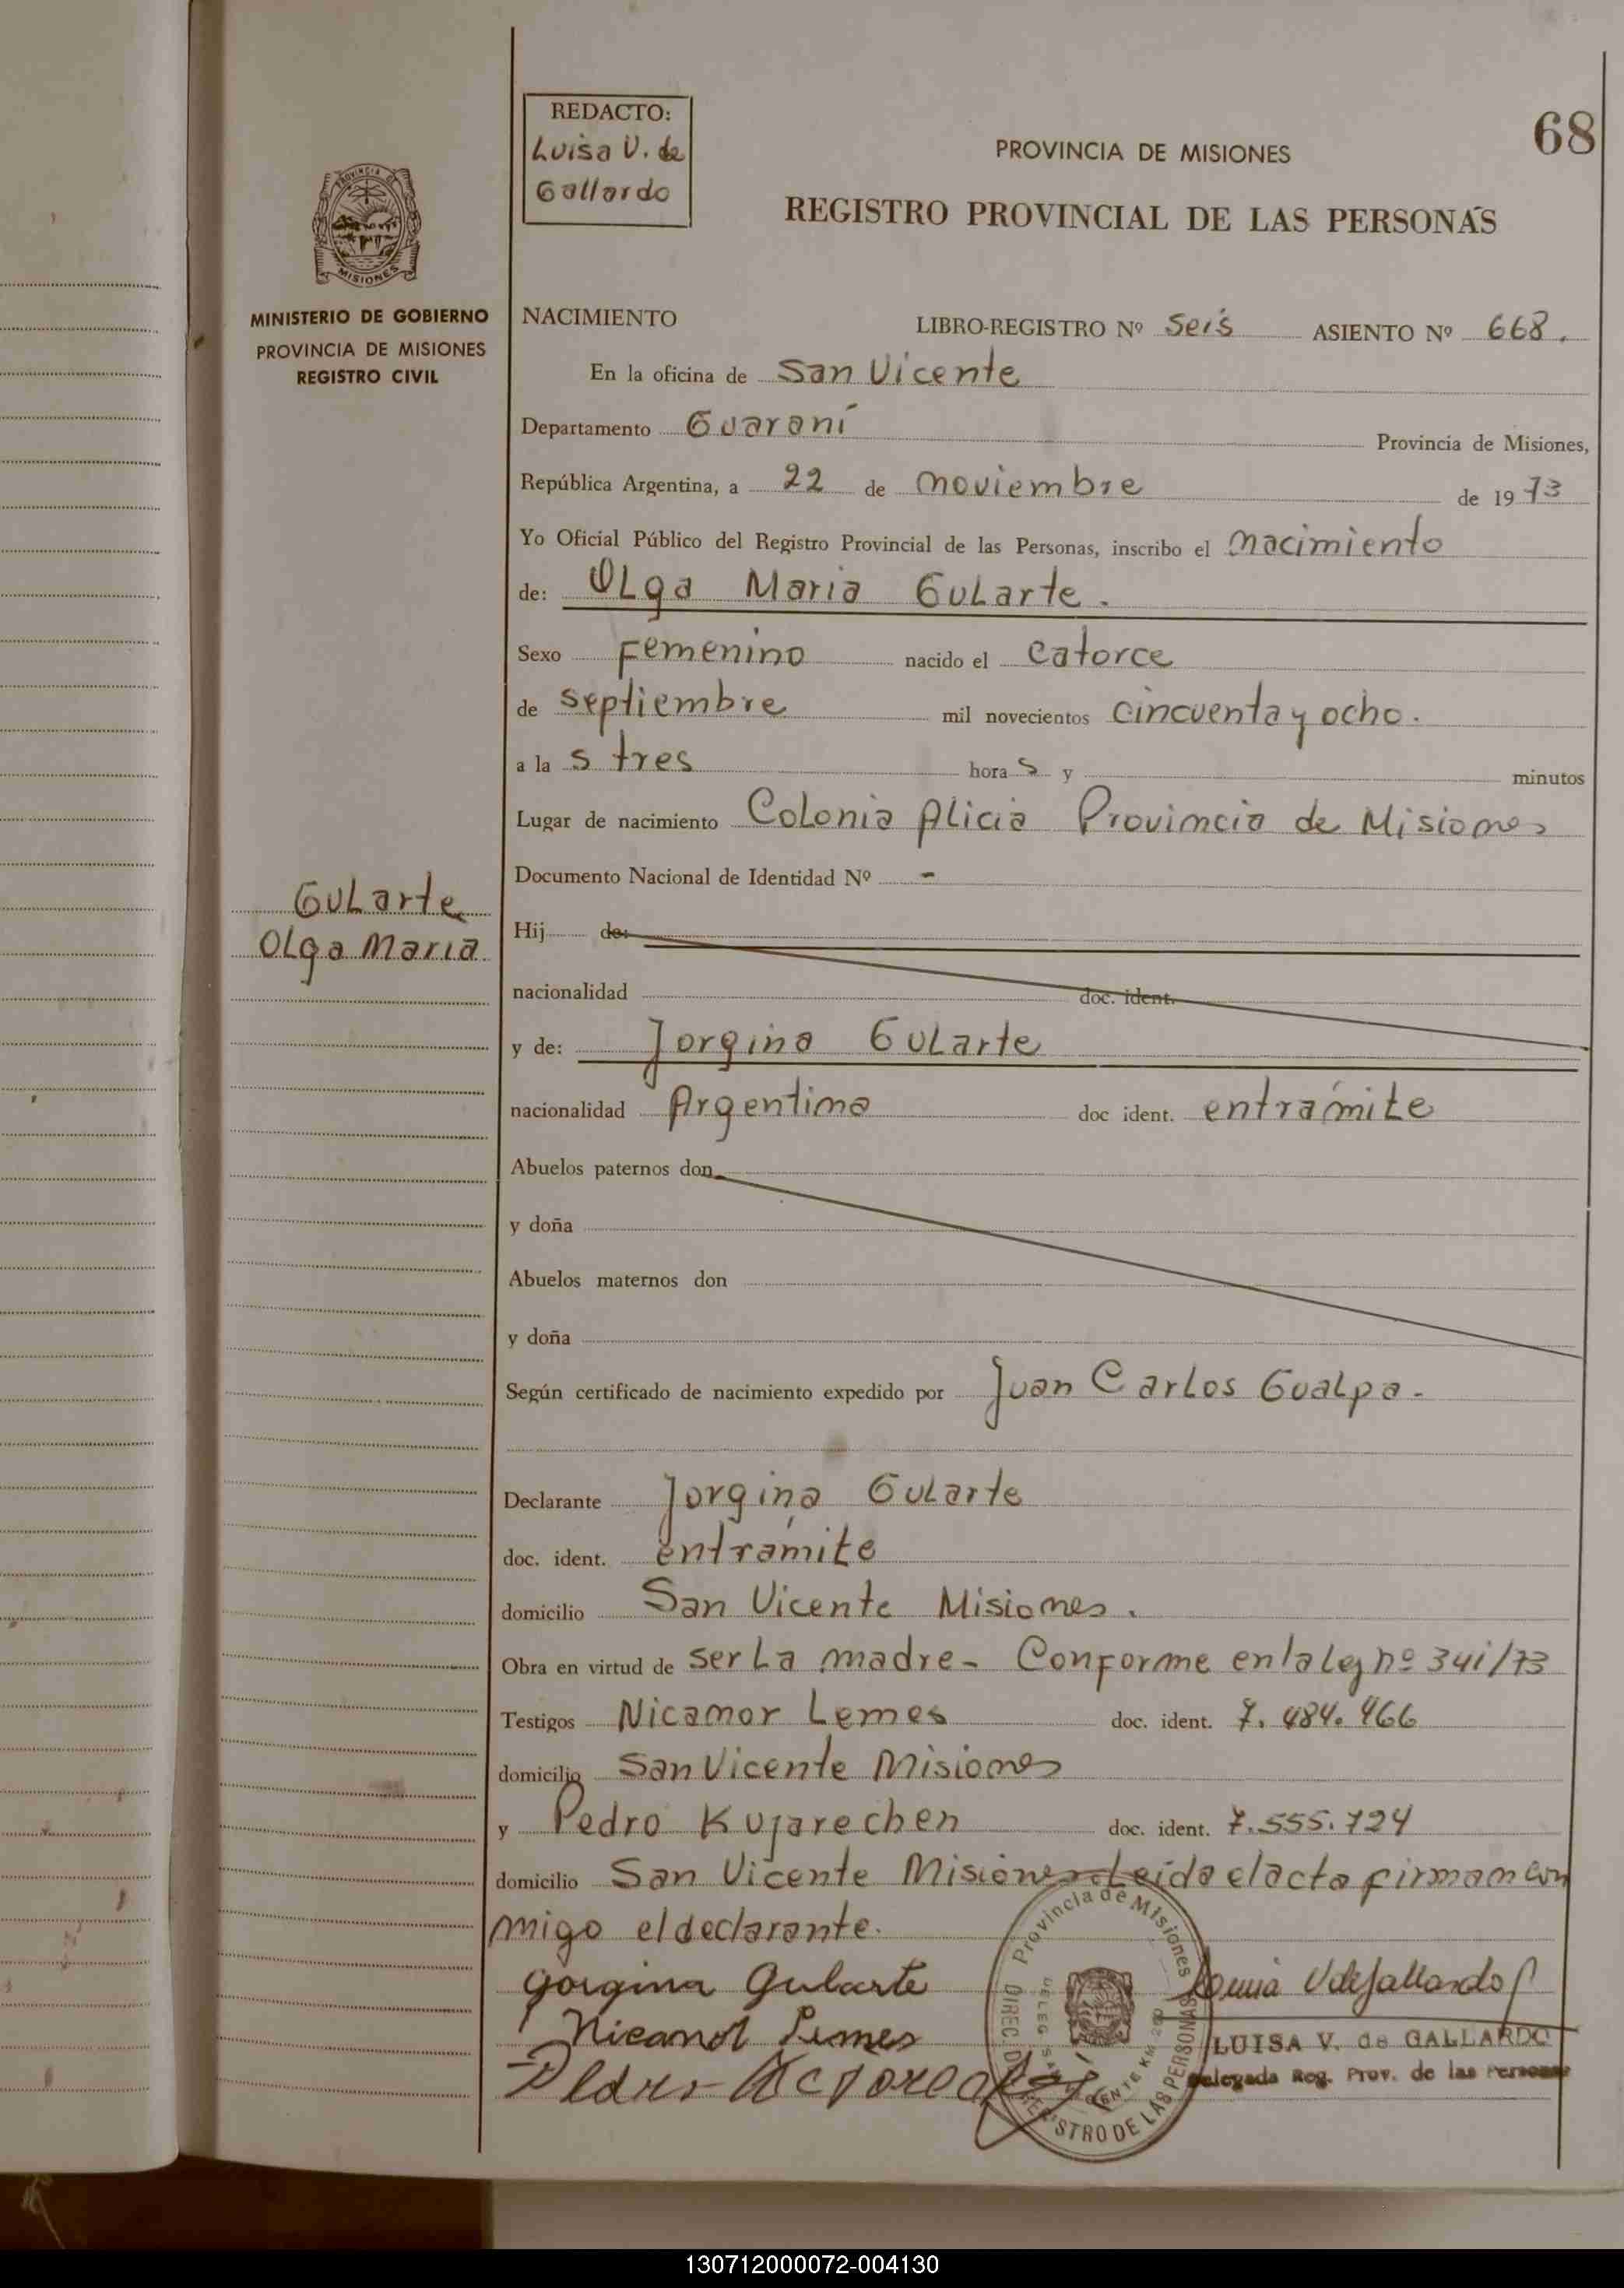 68
REDACTO:
Luisa V. de
Gallardo
PROVINCIA DE MISIONES
REGISTRO PROVINCIAL DE LAS PERSONAS
PROVINCIA DE
MISIONES
MINISTERIO DE GOBIERNO
PROVINCIA DE MISIONES
REGISTRO CIVIL
NACIMIENTO LIBRO-REGISTRO Nº Seis ASIENTO Nº 668.
En la oficina de San Vicente
Departamento Guaraní Provincia de Misiones,
República Argentina, a 22 de noviembre de 1973
Yo Oficial Público del Registro Provincial de las Personas, inscribo el nacimiento
de: Olga Maria Gularte.
Sexo Femenino nacido el catorce
de septiembre mil novecientos cincuenta y ocho.
a la s tres hora s y minutos
Lugar de nacimiento Colonia Alicia Provincia de Misiones
Documento Nacional de Identidad Nº -
Gularte
Olga Maria
Hij de:
nacionalidad doc. ident.
y de: Jorgina Gularte
nacionalidad Argentina doc ident. entrámite
Abuelos paternos don
y doña
Abuelos maternos don
y doña
Según certificado de nacimiento expedido por Juan Carlos Gualpa.
Declarante Jorgina Gularte
doc. ident. entramite
domicilio San Vicente Misiones.
Obra en virtud de ser la madre- Conforme en la ley nº 341/73
Testigos Nicamor Lemes doc. ident. 7.484.466
domicilio San Vicente Misiones
y Pedro Kujarechen doc. ident. 7.555.724
domicilio San Vicente Misiones Leida el acta firman con
migo el declarante.
Gorgina Gularte
Nicanol Lemes
Provincia de Misiones
REGISTRO DE LAS PERSONAS
LUISA V. de GALLARDO
Delegada Reg. Prov. de las Personas
130712000072-004130